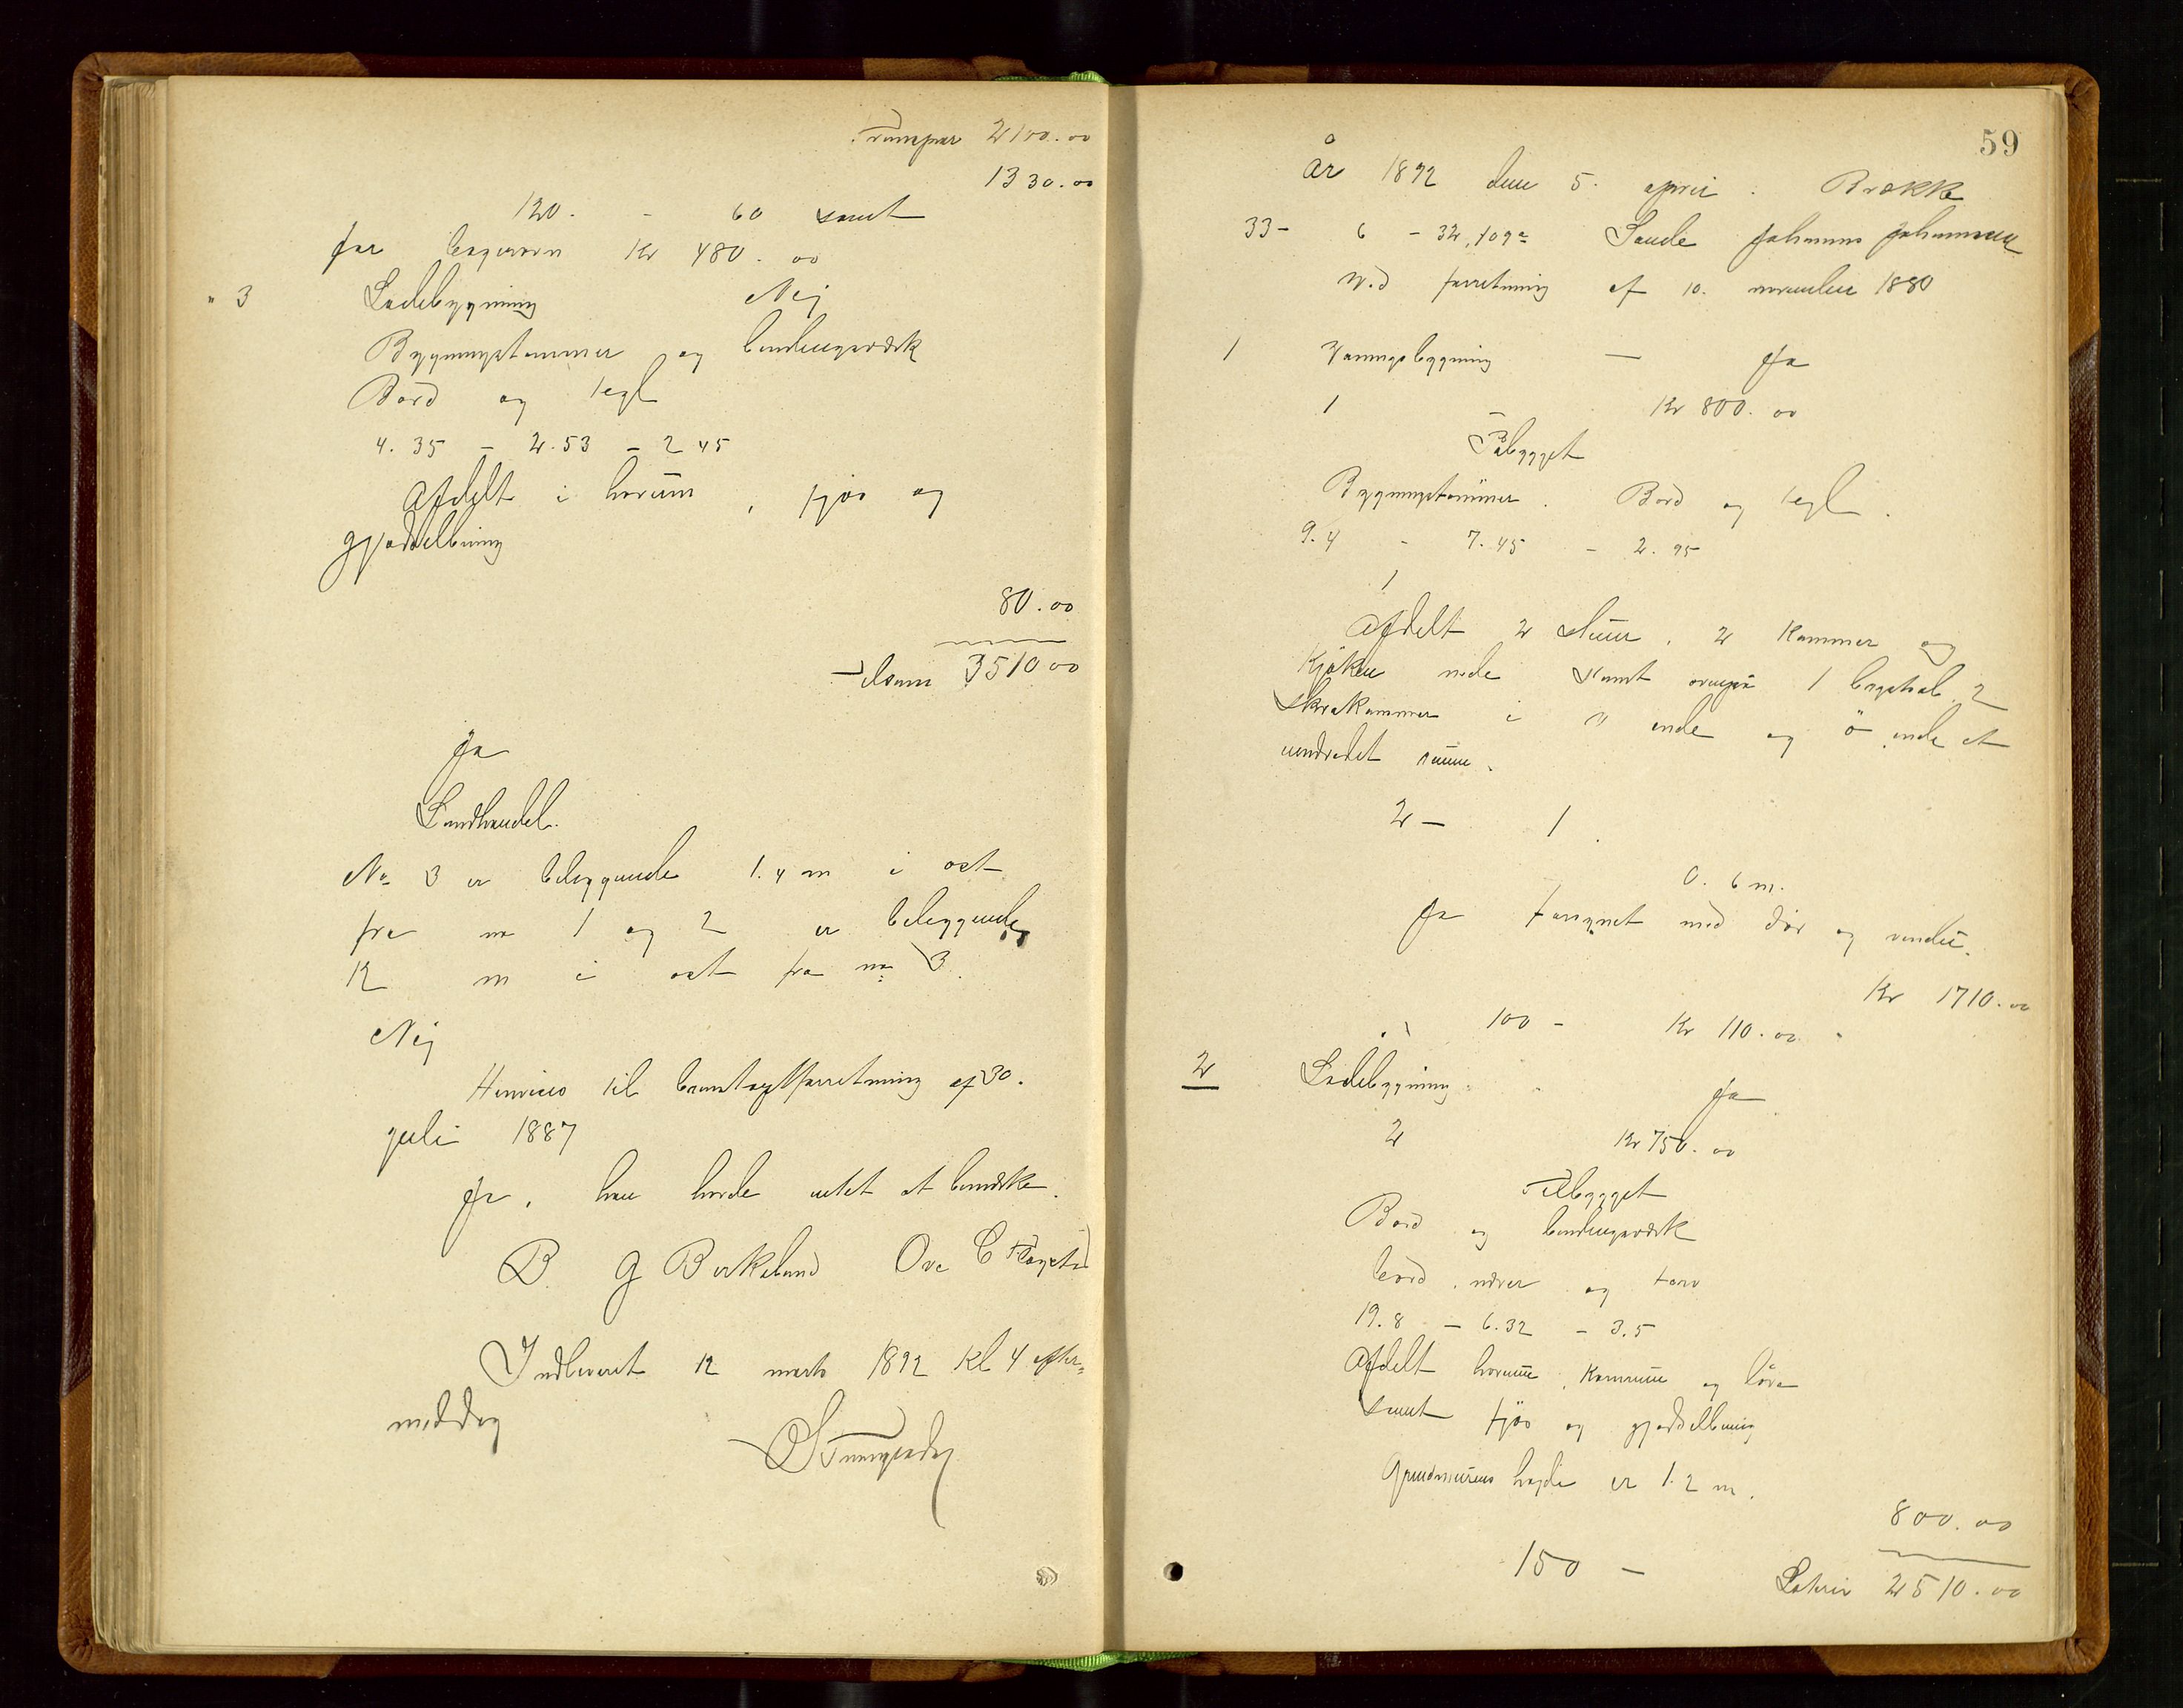 Transpor 2100.00
1330.00
120. - 60 samt
for bagerovn Kr 480.00
" 3 Ladebygning Nej
Bygningstømmer og bindingsværk
Bord og tegl
4.35 - 2.53 - 2 45
Afdelt i horum, fjøs og
gjødselbinng
80.00
Tilsam 3510 00
Ja
Landhandel.
No 3 er beliggende 1.4 m i øst
fra no 1 og 2 er beliggende
12 m i øst fra no 3.
Nej
Henvises til brandtagstforretning af 30.
juli 1887
Ja, han havde intet at bemærke.
B. G Birkeland Ove C
Indleveret 12 marts 1892 Kl 4 efter=
middag
59
År 1892 den 5. april. Brække
33- 6 - 32, 109a Sande Johannes Johannesen
Ved forretning af 10. november 1880
1 Vaaningsbygning — Ja
1 — Kr 800.00
Påbygget
Bygningstømmer. Bord og tegl.
9.4 - 7.45 - 2.95
1
Afdelt 2 stuer, 2 kammer og
kjøken nede samt ovenpå 1 bagstab 2
skrakammer i v ende og ø ende et
uindredet rum.
2 — 1.
0. 6 m.
Ja forsynet med dør og vindu.
Kr 1710.00
100 - Kr 110.00
2 Ladebygning. Ja
2 Kr 750.00
Tilbygget
Bord og bindingsværk
bord, næver og torv
19.8 - 6.32 - 3.5
Afdelt horum, kornrum og løve
samt fjøs og gjødselbinng
Grundmurens høyde er 1.2 m.
800.00
150 — Lateris 2510.00